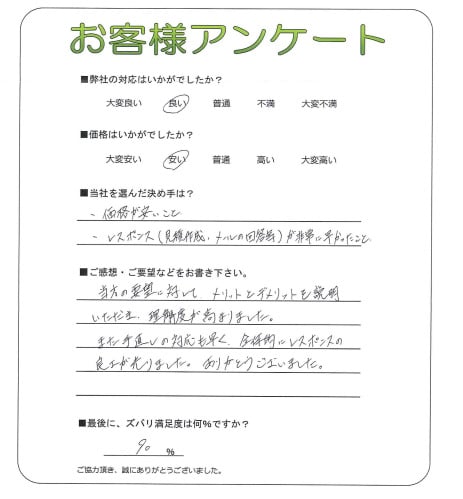 お客様アンケート
■弊社の対応はいかがでしたか？
大変良い 良い 普通 不満 大変不満
■価格はいかがでしたか？
大変安い 安い 普通 高い 大変高い
■当社を選んだ決め手は？
- 価格が安いこと
- レスポンス(見積作成、メールの回答等)が非常に早かったこと
■ご感想・ご要望などをお書き下さい。
当方の要望に対して、メリットとデメリットを説明
いただき、理解度が高まりました。
また手直しの対応も早く、全体的にレスポンスの
良さが光りました。ありがとうございました。
■最後に、ズバリ満足度は何％ですか？
90 ％
ご協力頂き、誠にありがとうございました。